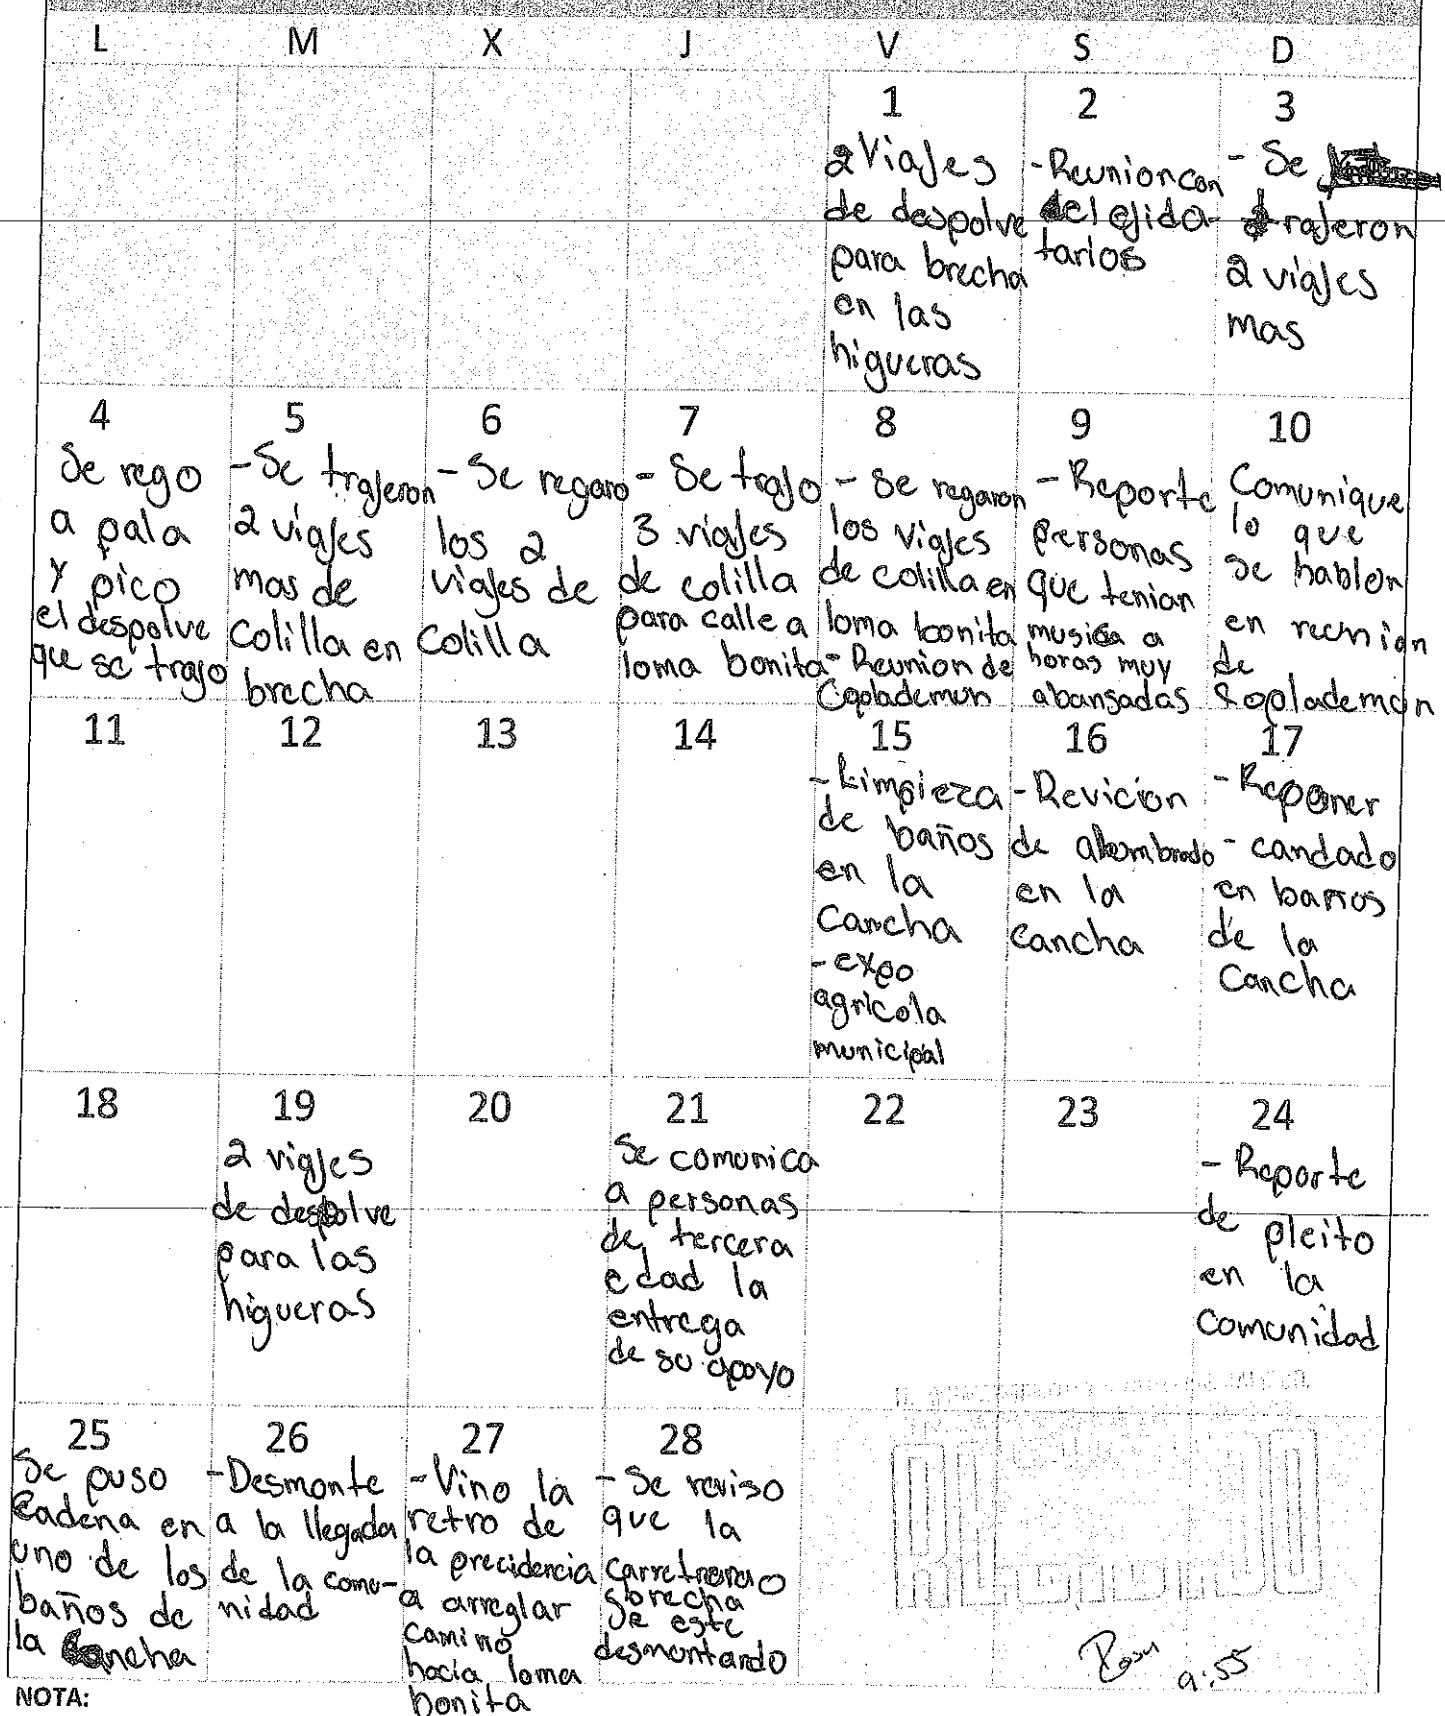 L M X J V S D
1
2 Viajes
de despolve
para brecha
en las
higueras
2
-Reunion con
del ejida-
tarios
3
- Se
trajeron
2 viajes
mas
4
Se rego
a pala
y pico
el despolve
que se trajo
5
-Se trajeron
2 viajes
mas de
Colilla en
brecha
6
- Se regaro
los 2
viajes de
Colilla
7
- Se trajo
3 viajes
de colilla
para calle a
loma bonita
8
- Se regaron
los viajes
de colilla en
loma bonita
- Reunion de
Coplademun
9
- Reporte
personas
que tenian
musica a
horas muy
abansadas
10
Comunique
lo que
se hablon
en reunion
de
Coplademon
11
12
13
14
15
-Limpieza
de baños
en la
Cancha
-expo
agricola
municipal
16
-Revicion
de alumbrado
en la
Cancha
17
-Reponer
- candado
en baños
de la
Cancha
18
19
2 viajes
de despolve
para las
higueras
20
21
Se comunica
a personas
de tercera
edad la
entrega
de su apoyo
22
23
24
- Reporte
de pleito
en la
Comunidad
25
Se puso
Cadena en
uno de los
baños de
la Cancha
26
-Desmonte
a la llegada
de la comu-
nidad
27
-Vino la
retro de
la precidencia
a arreglar
camino
hacia loma
bonita
28
- Se reviso
que la
carretera o
brecha
Se este
desmontando
9:55
NOTA: